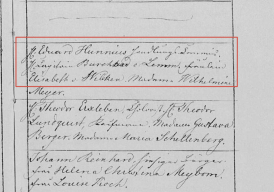 H. Eduard Hunnius Handlungs Commis,
H. Kapitain Burchhard v. Lemm, Fräulein
Elisabeth v. Wilcken Madame Wilhelmine
Meyer.
H. Theodor Exleben, H. Theodor
Lundquist, Kaufmann, Madame Gustava
Berger, Madame Maria Schellenberg.
Johann Reinhard, Bürger,
Helena Christina Meyborn,
Louise Koch.